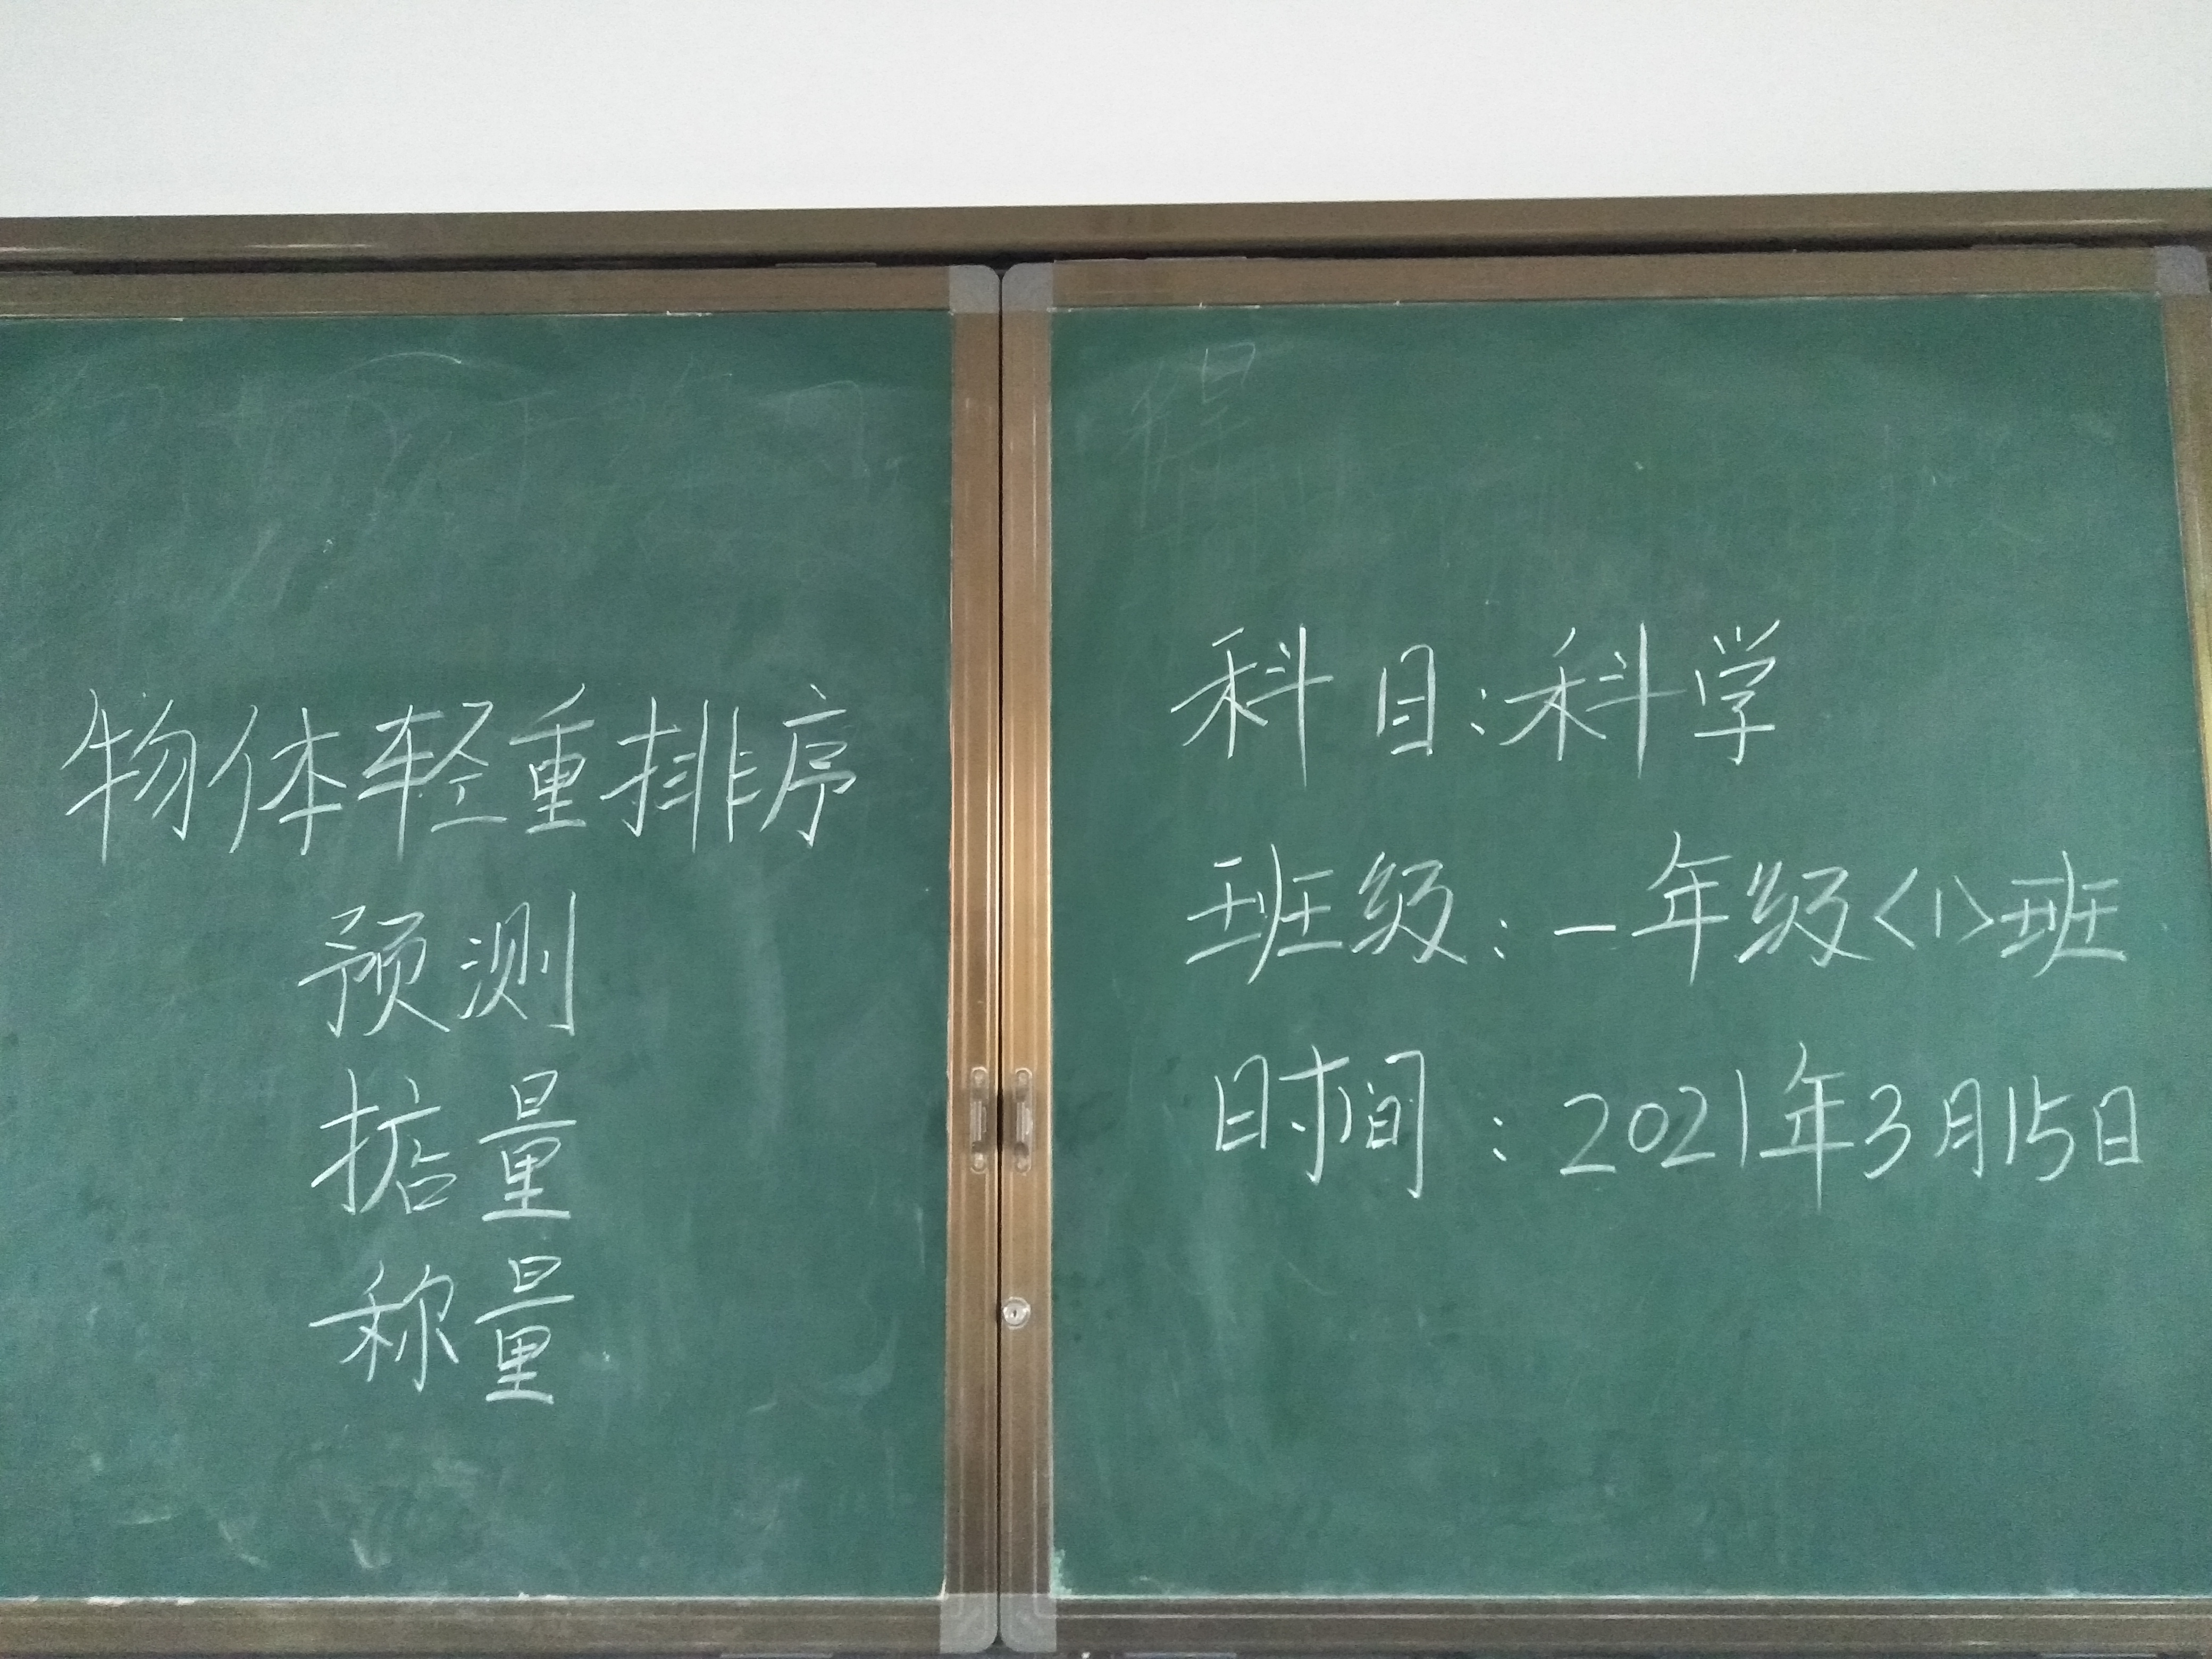 物体轻重排序
预测
掂量
称量
科目:科学
班级:一年级<1>班
时间:2021年3月15日